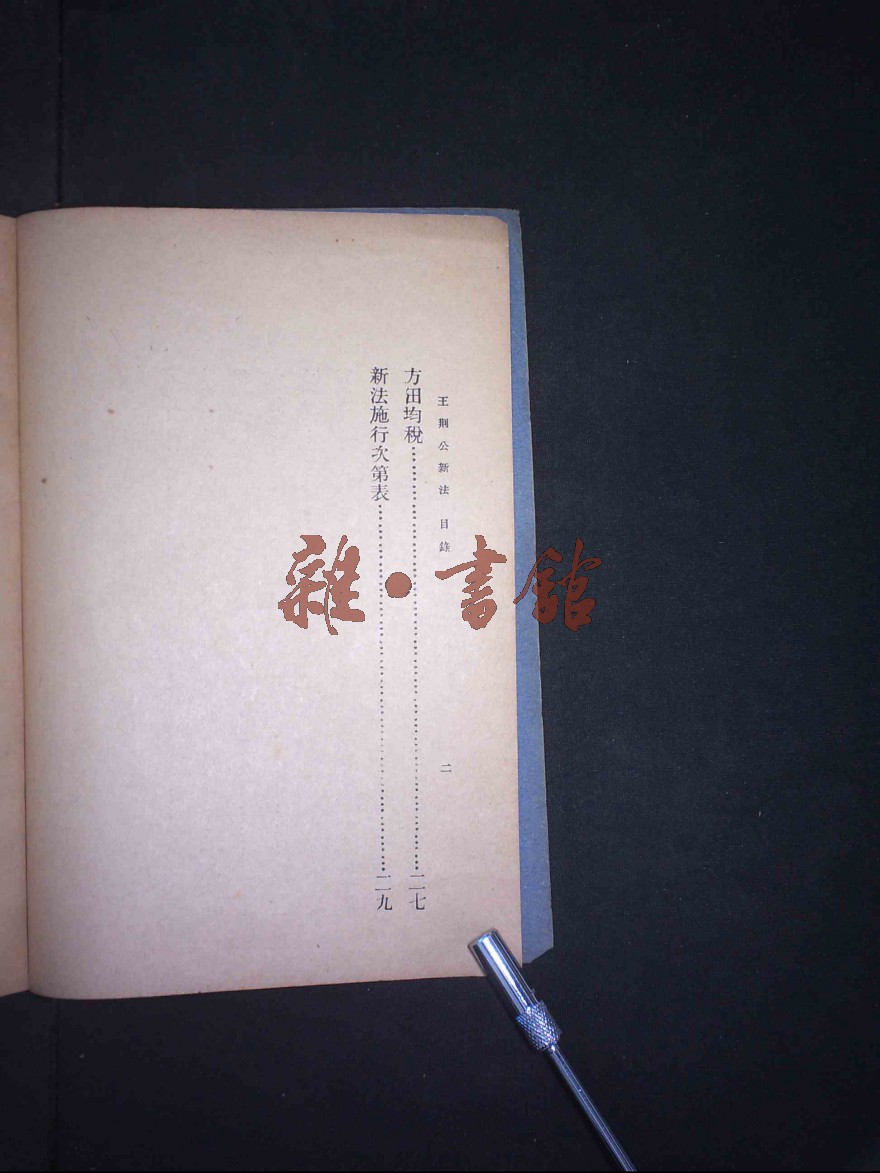 王荆公新法 目錄 二
方田均稅……二七
新法施行次第表……二九
雜·書館